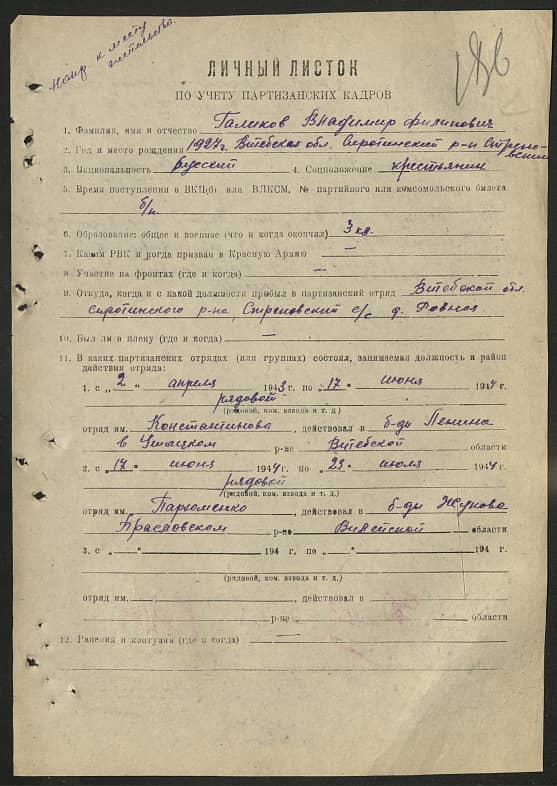 напр к месту
жительства.
186
ЛИЧНЫЙ ЛИСТОК
ПО УЧЕТУ ПАРТИЗАНСКИХ КАДРОВ
1. Фамилия, имя и отчество Галиков Владимир Филипович
2. Год и место рождения 1927г. Витебская обл. Сиротинский р-н
3. Национальность русский 4. Соцположение крестьянин
5. Время поступления в ВКП(б) или ВЛКСМ, № партийного или комсомольского билета
б/п
6. Образование: общее и военное (что и когда окончил) 3 кл.
7. Каким РВК и когда призван в Красную Армию —
8. Участие на фронтах (где и когда) —
9. Откуда, когда и с какой должности прибыл в партизанский отряд Витебской обл.
сиротинского р-на, с/с д. Ровная
10. Был ли в плену (где и когда) —
11. В каких партизанских отрядах (или группах) состоял, занимаемая должность и район
действия отряда:
1. с „2 " апреля 1943 г. по „17 " июня 1944 г.
рядовой
(рядовой, ком. взвода и т. д.)
отряд им. Константинова, действовал в б-ды Ленина
в Ушацком р-не Витебской области
2. с „17 " июня 1944 г. по „23 " июля 1944 г.
рядовой
(рядовой, ком. взвода и т. д.)
отряд им. Пархоменко, действовал в б-ды Жукова
Браславском р-не Вилейской области
3. с „ " 194 г. по „ " 194 г.
(рядовой, ком. взвода и т. д.)
отряд им. , действовал в
р-не области
12. Ранения и контузии (где и когда) —